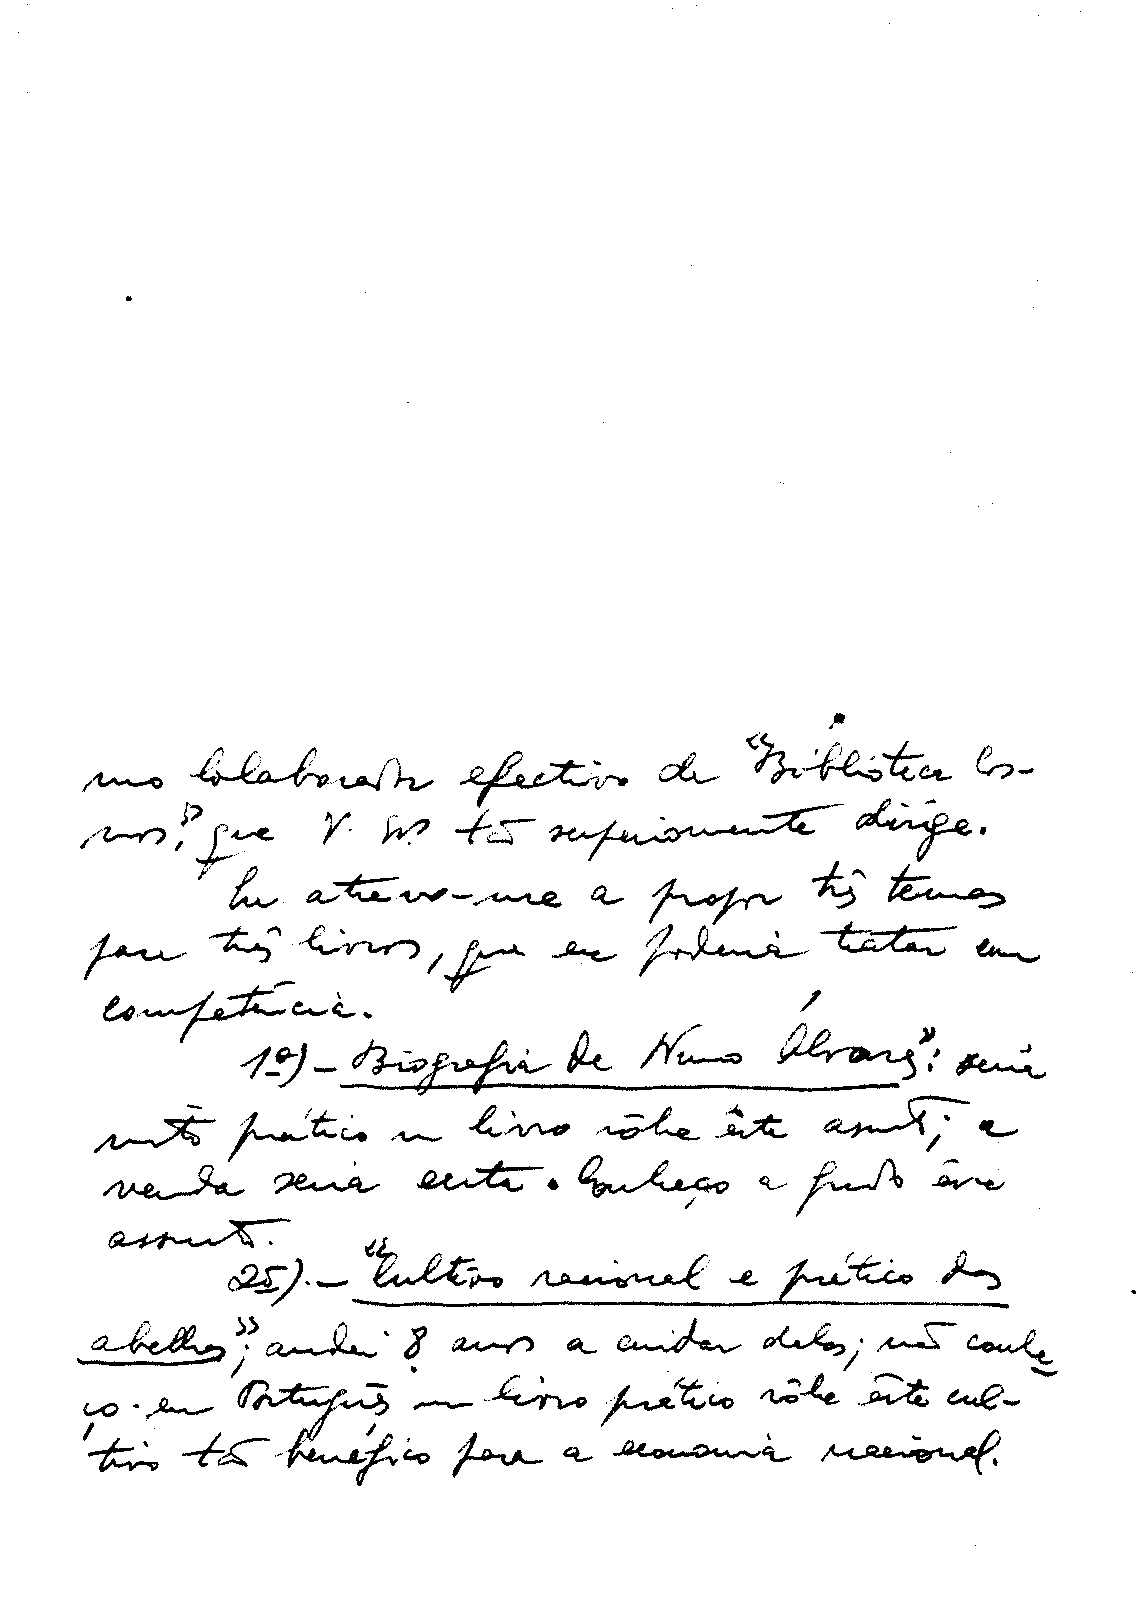 mo colaborador efectivo da "Biblioteca Cos-
mos", que V. tão superiormente dirige.
Eu atrevo-me a propor três temas
para três livros, que eu poderia tratar com
competência.
1º) - Biografia de Nuno Álvares": seria
muito prático um livro sôbre êste assunto; a
venda seria certa. Conheço a fundo êsse
assunto.
2º). - "Cultivo racional e prático das
abelhas"; andei 8 anos a cuidar delas; não conhe
ço em Português um livro prático sôbre êste cul-
tivo tão benéfico para a economia nacional.